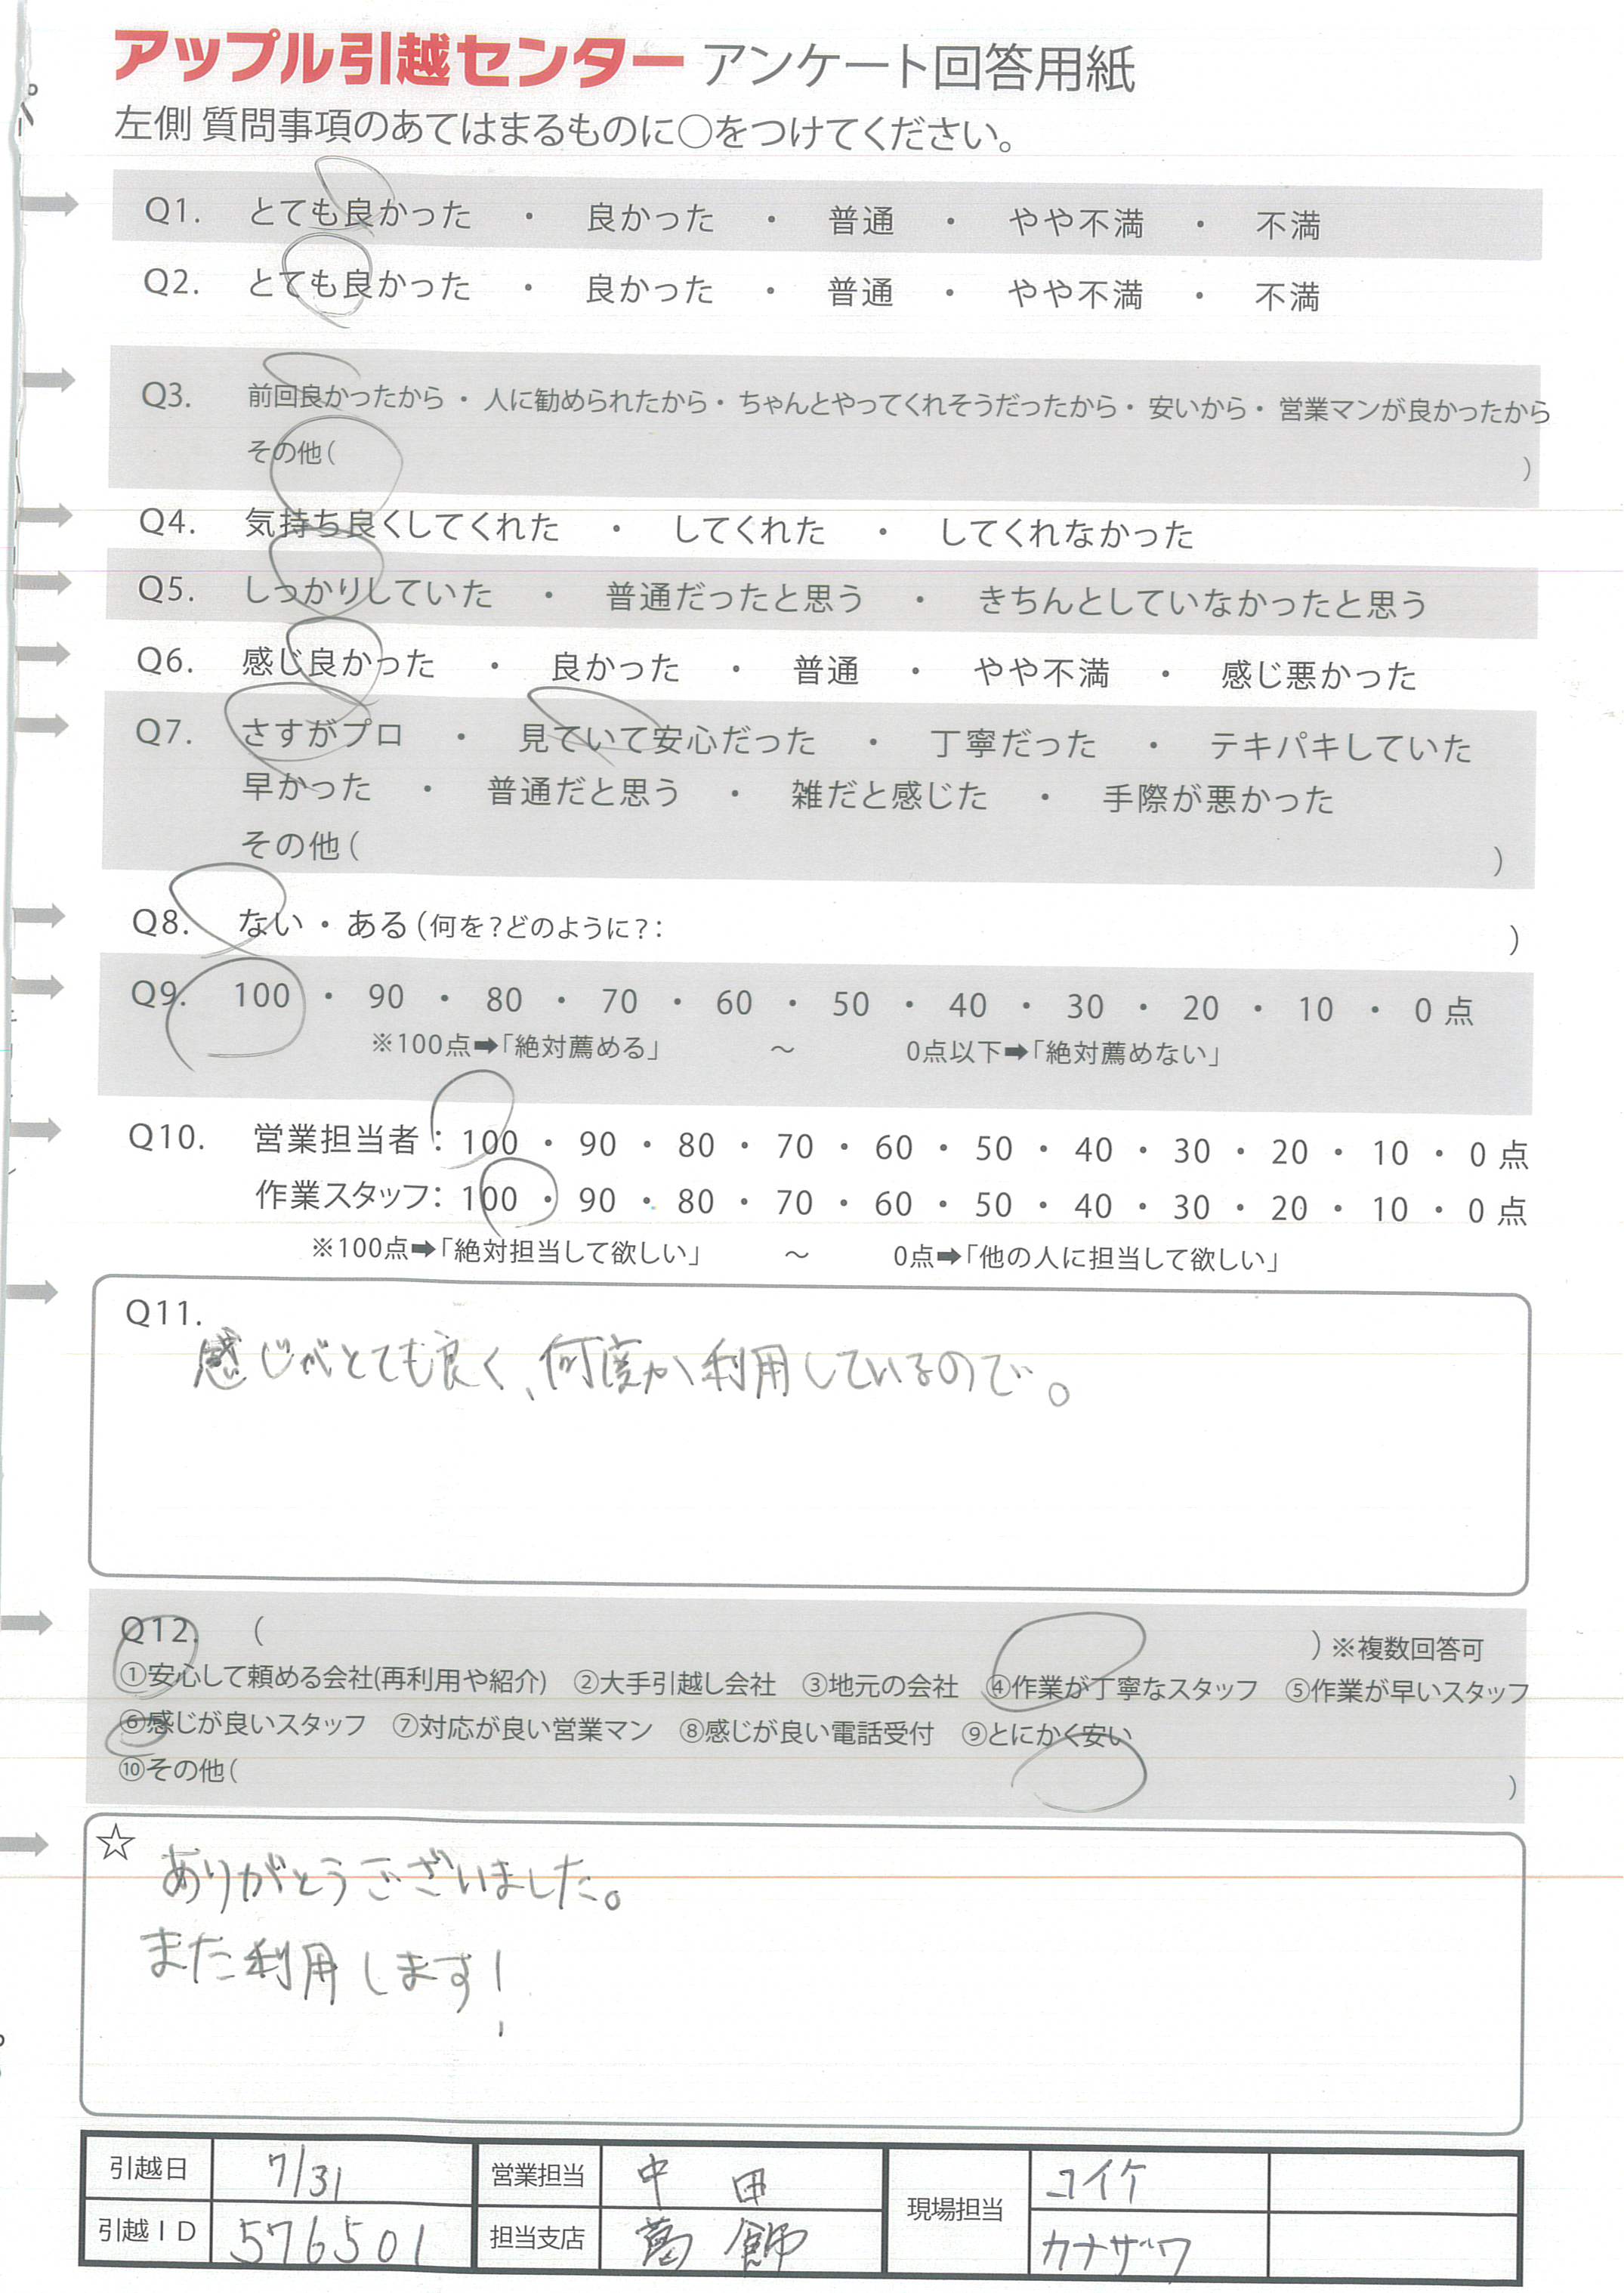 アップル引越センター アンケート回答用紙
左側 質問事項のあてはまるものに○をつけてください。
Q1. とても良かった ・ 良かった ・ 普通 ・ やや不満 ・ 不満
Q2. とても良かった ・ 良かった ・ 普通 ・ やや不満 ・ 不満
Q3. 前回良かったから ・ 人に勧められたから・ ちゃんとやってくれそうだったから・ 安いから・ 営業マンが良かったから
その他( )
Q4. 気持ち良くしてくれた ・ してくれた ・ してくれなかった
Q5. しっかりしていた ・ 普通だったと思う ・ きちんとしていなかったと思う
Q6. 感じ良かった ・ 良かった ・ 普通 ・ やや不満 ・ 感じ悪かった
Q7. さすがプロ ・ 見ていて安心だった ・ 丁寧だった ・ テキパキしていた
早かった ・ 普通だと思う ・ 雑だと感じた ・ 手際が悪かった
その他( )
Q8. ない・ある(何を?どのように?: )
Q9. 100 ・ 90 ・ 80 ・ 70 ・ 60 ・ 50 ・ 40 ・ 30 ・ 20 ・ 10 ・ 0 点
※100点➡「絶対薦める」 ～ 0点以下➡「絶対薦めない」
Q10. 営業担当者: 100 ・ 90 ・ 80 ・ 70 ・ 60 ・ 50 ・ 40 ・ 30 ・ 20 ・ 10 ・ 0 点
作業スタッフ: 100 ・ 90 ・ 80 ・ 70 ・ 60 ・ 50 ・ 40 ・ 30 ・ 20 ・ 10 ・ 0 点
※100点➡「絶対担当して欲しい」 ～ 0点➡「他の人に担当して欲しい」
Q11.
感じがとても良く、何度か利用しているので。
Q12. ( ) ※複数回答可
①安心して頼める会社(再利用や紹介) ②大手引越し会社 ③地元の会社 ④作業が丁寧なスタッフ ⑤作業が早いスタッフ
⑥感じが良いスタッフ ⑦対応が良い営業マン ⑧感じが良い電話受付 ⑨とにかく安い
⑩その他( )
☆
ありがとうございました。
また利用します!
引越日 7/31 営業担当 中田 現場担当 コイケ
引越ID 576501 担当支店 葛飾 カナザワ